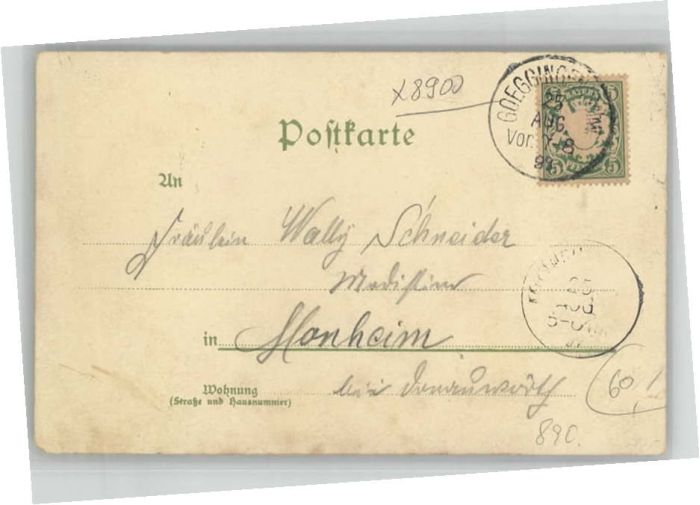 x8900
GOEGGINGEN
25
AUG
Vor. 7-8
99
BAYERN
5 5
Postkarte
An
Fräulein Wally Schneider
Modistin
in Monheim
Wohnung
(Straße und Hausnummer)
bei Donauwörth
25
AUG
60
890.